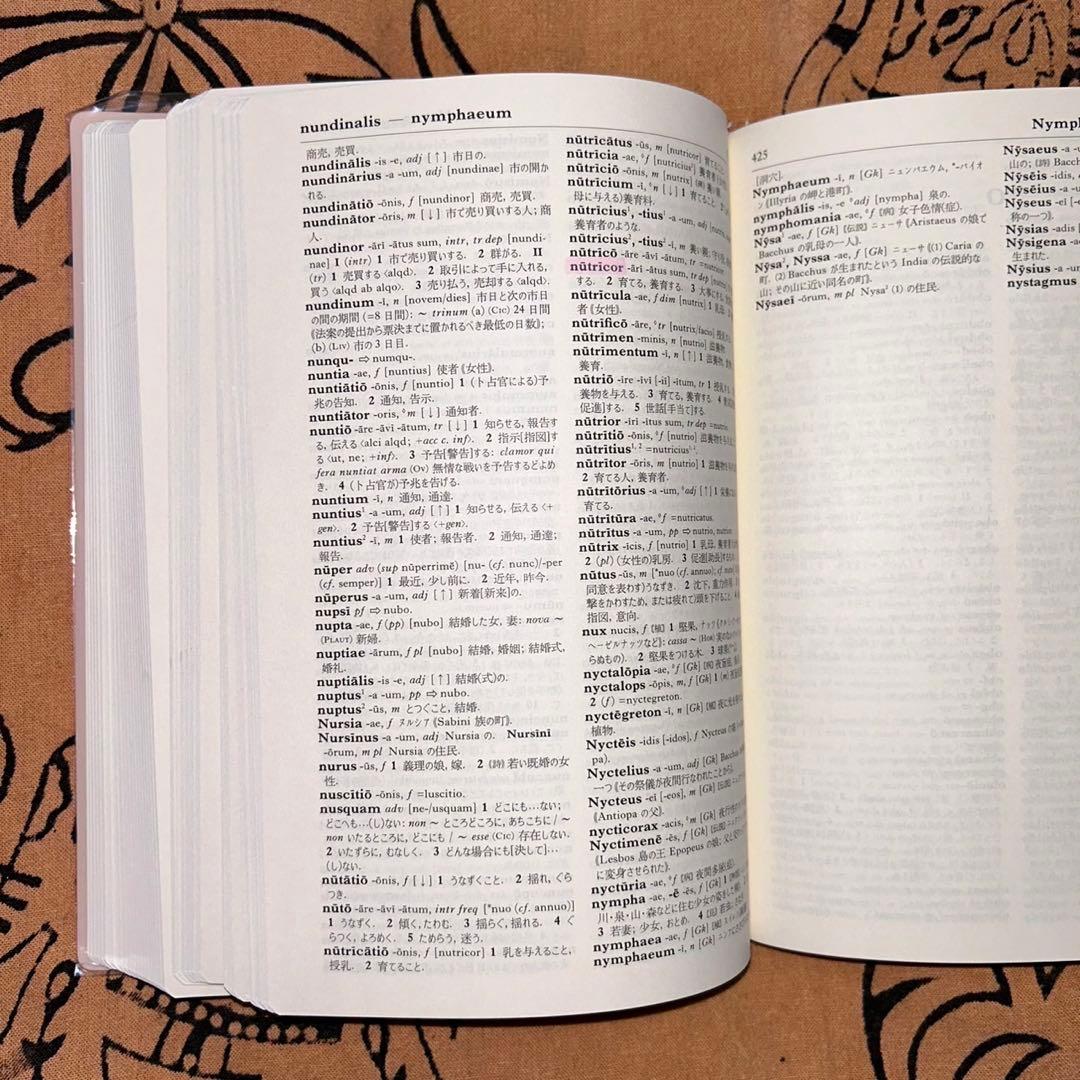 nundinalis — nymphaeum
商売, 売買.
nundinālis -is -e, adj [↑] 市日の.
nundinārius -a -um, adj [nundinae] 市の開か
れる.
nundinātiō -ōnis, f [nundinor] 商売, 売買.
nundinātor -ōris, m [↓] 市で売り買いする人; 商
人.
nundinor -ārī -ātus sum, intr, tr dep [nundi-
nae] I (intr) 1 市で売り買いする. 2 群がる. II
(tr) 1 売買する〈alqd〉. 2 取引によって手に入れる,
買う〈alqd ab alqo〉. 3 売り払う, 売却する〈alqd〉.
nundinum -ī, n [novem/dies] 市日と次の市日
の間の期間 (=8 日間): ~ trinum (a) (CIC) 24 日間
《法案の提出から票決までに置かれるべき最低の日数》;
(b) (LIV) 市の 3 日目.
nunqu- ⇨ numqu-.
nuntia -ae, f [nuntius] 使者《女性》.
nuntiātiō -ōnis, f [nuntio] 1 (ト占官による)予
兆の告知. 2 通知, 告示.
nuntiātor -oris, °m [↓] 通知者.
nuntiō -āre -āvī -ātum, tr [↓] 1 知らせる, 報告す
る, 伝える〈alci alqd; +acc c. inf〉. 2 指示[指図]す
る〈ut, ne; +inf〉. 3 予告[警告]する: clamor qui
fera nuntiat arma (Ov) 無情な戦いを予告するどよめ
き. 4 (ト占官が)予兆を告げる.
nuntium -ī, n 通知, 通達.
nuntius¹ -a -um, adj [↑] 1 知らせる, 伝える〈+
gen〉. 2 予告[警告]する〈+gen〉.
nuntius² -ī, m 1 使者; 報告者. 2 通知, 通達;
報告.
nūper adv (sup nūperrimē) [nu- (cf. nunc)/-per
(cf. semper)] 1 最近, 少し前に. 2 近年, 昨今.
nūperus -a -um, adj [↑] 新着[新来]の.
nupsī pf ⇨ nubo.
nupta -ae, f (pp) [nubo] 結婚した女, 妻: nova ~
(PLAUT) 新婦.
nuptiae -ārum, f pl [nubo] 結婚, 婚姻; 結婚式,
婚礼.
nuptiālis -is -e, adj [↑] 結婚(式)の.
nuptus¹ -a -um, pp ⇨ nubo.
nuptus² -ūs, m とつぐこと, 結婚.
Nursia -ae, f ヌルシア《Sabini 族の町》.
Nursīnus -a -um, adj Nursia の. Nursīnī
-ōrum, m pl Nursia の住民.
nurus -ūs, f 1 義理の娘, 嫁. 2 (詩) 若い既婚の女
性.
nuscitiō -ōnis, f =luscitio.
nusquam adv [ne-/usquam] 1 どこにも…ない;
どこへも…(し)ない: non ~ ところどころに, あちこちに / ~
non いたるところに, どこにも / ~ esse (CIC) 存在しない.
2 いたずらに, むなしく. 3 どんな場合にも[決して]…
(し)ない.
nūtātiō -ōnis, f [↓] 1 うなずくこと. 2 揺れ, ぐら
つき.
nūtō -āre -āvī -ātum, intr freq [*nuo (cf. annuo)]
1 うなずく. 2 傾く, たわむ. 3 揺らぐ, 揺れる. 4 ぐ
らつく, よろめく. 5 ためらう, 迷う.
nūtrīcātiō -ōnis, f [nutricor] 1 乳を与えること,
授乳. 2 育てること.
nūtrīcātus -ūs, m [nutricor] 育て
nūtrīcia -ae, °f [nutricius¹] 養育
nūtrīciō -ōnis, m [nutrix]
nūtrīcium -ī, °n [↓] 1 育てること
母に与える)養育料.
nūtrīcius¹, -tius¹ -a -um, adj [nutrix]
養育者のような.
nūtrīcius², -tius² -ī, m
nūtrīcō -āre -āvī -ātum, tr =nutricor
nūtrīcor -ārī -ātus sum, tr dep
する. 2 育てる, 養育する. 3 大事に
nūtrīcula -ae, f dim [nutrix] 1 乳母.
者《女性》.
nūtrīficō -āre, °tr [nutrix/facio]
nūtrīmen -minis, n [nutrio] 滋養物
nūtrīmentum -ī, n [↑] 1 滋養
養育.
nūtriō -īre -īvī [-iī] -ītum, tr 1 授乳
養物を与える. 3 育てる, 養育する. 4
促進]する. 5 世話[手当て]する.
nūtrior -īrī -ītus sum, tr dep =nutrio.
nūtrītiō -ōnis, °f [nutrio]
nūtrītius¹·² =nutricius¹·².
nūtrītor -ōris, m [nutrio] 1
2 育てる人, 養育者.
nūtrītōrius -a -um, °adj [↑] 1
育てる.
nūtrītūra -ae, °f =nutricatus.
nūtrītus -a -um, pp ⇨ nutrio, nutrior.
nūtrix -īcis, f [nutrio] 1 乳母, 養育
2 (pl) (女性の)乳房. 3 促進[助長]するもの.
nūtus -ūs, m [*nuo (cf. annuo);
同意を表わす)うなずき. 2 沈下, 重力作用.
撃をかわすため, または疲れて)頭を下げること. 4
指図, 意向.
nux nucis, f〘植〙1 堅果, ナッツ
ヘーゼルナッツなど》: cassa ~ (HOR)
らぬもの). 2 堅果をつける木. 3
nyctalōpia -ae, °f [Gk]〘病〙夜盲症
nyctalops -ōpis, m, f [Gk] 1 (m)
2 (f) =nyctegreton.
nyctēgreton -ī, n [Gk]〘植〙夜に光を
植物.
Nyctēis -idis [-idos], f Nycteus の
pa).
Nyctelius -a -um, adj [Gk] Bacchus
一つ《その祭儀が夜間行なわれたことから》.
Nycteus -eī [-eos], m [Gk]〘伝説〙
《Antiopa の父》.
nycticorax -acis, °m [Gk] 夜行性の
Nyctimenē -ēs, f [Gk]〘伝説〙
《Lesbos 島の王 Epopeus の娘; 父と
に変身させられた》.
nyctūria -ae, °f〘病〙夜間多尿(症).
nympha -ae, -ē -ēs, f [Gk] 1
川・泉・山・森などに住む少女の姿をした
3 若妻; 少女, おとめ. 4
nymphaea -ae, f [Gk]〘植〙
nymphaeum -ī, n [Gk]
425
Nymph
[洞穴].
Nymphaeum -ī, n [Gk] ニュンパエウム, *-パイオ
ン《Illyria の岬と港町》.
nymphālis -is, -e °adj [nympha] 泉の.
nymphomania -ae, °f〘病〙女子色情(症).
Nȳsa¹ -ae, f [Gk]〘伝説〙ニューサ《Aristaeus の娘で
Bacchus の乳母の一人》.
Nȳsa², Nyssa -ae, f [Gk] ニューサ《(1) Caria の
町. (2) Bacchus が生まれたという India の伝説的な
山; その山に近い同名の町》.
Nȳsaeī -ōrum, m pl Nysa² (1) の住民.
Nȳsaeus -a
山の; (詩) Bacch
Nȳsēis -idis,
Nȳsēius -a
Nȳseus -eī [-e
称の一つ》.
Nȳsias -adis
Nȳsigena -ae
Nȳsius -a -u
nystagmus